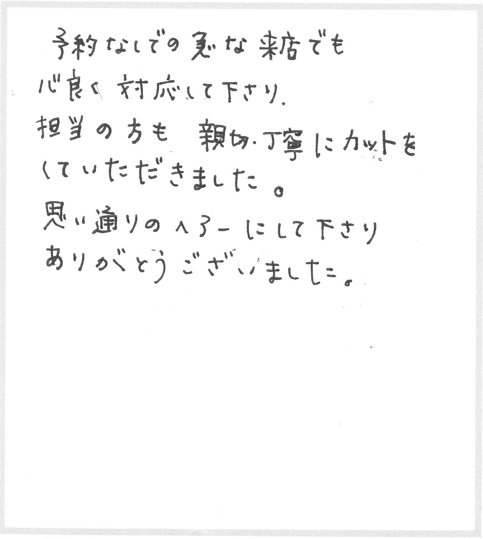 予約なしでの急な来店でも
心良く対応して下さり.
担当の方も 親切.丁寧にカットを
していただきました。
思い通りのヘアーにして下さり
ありがとうございました。